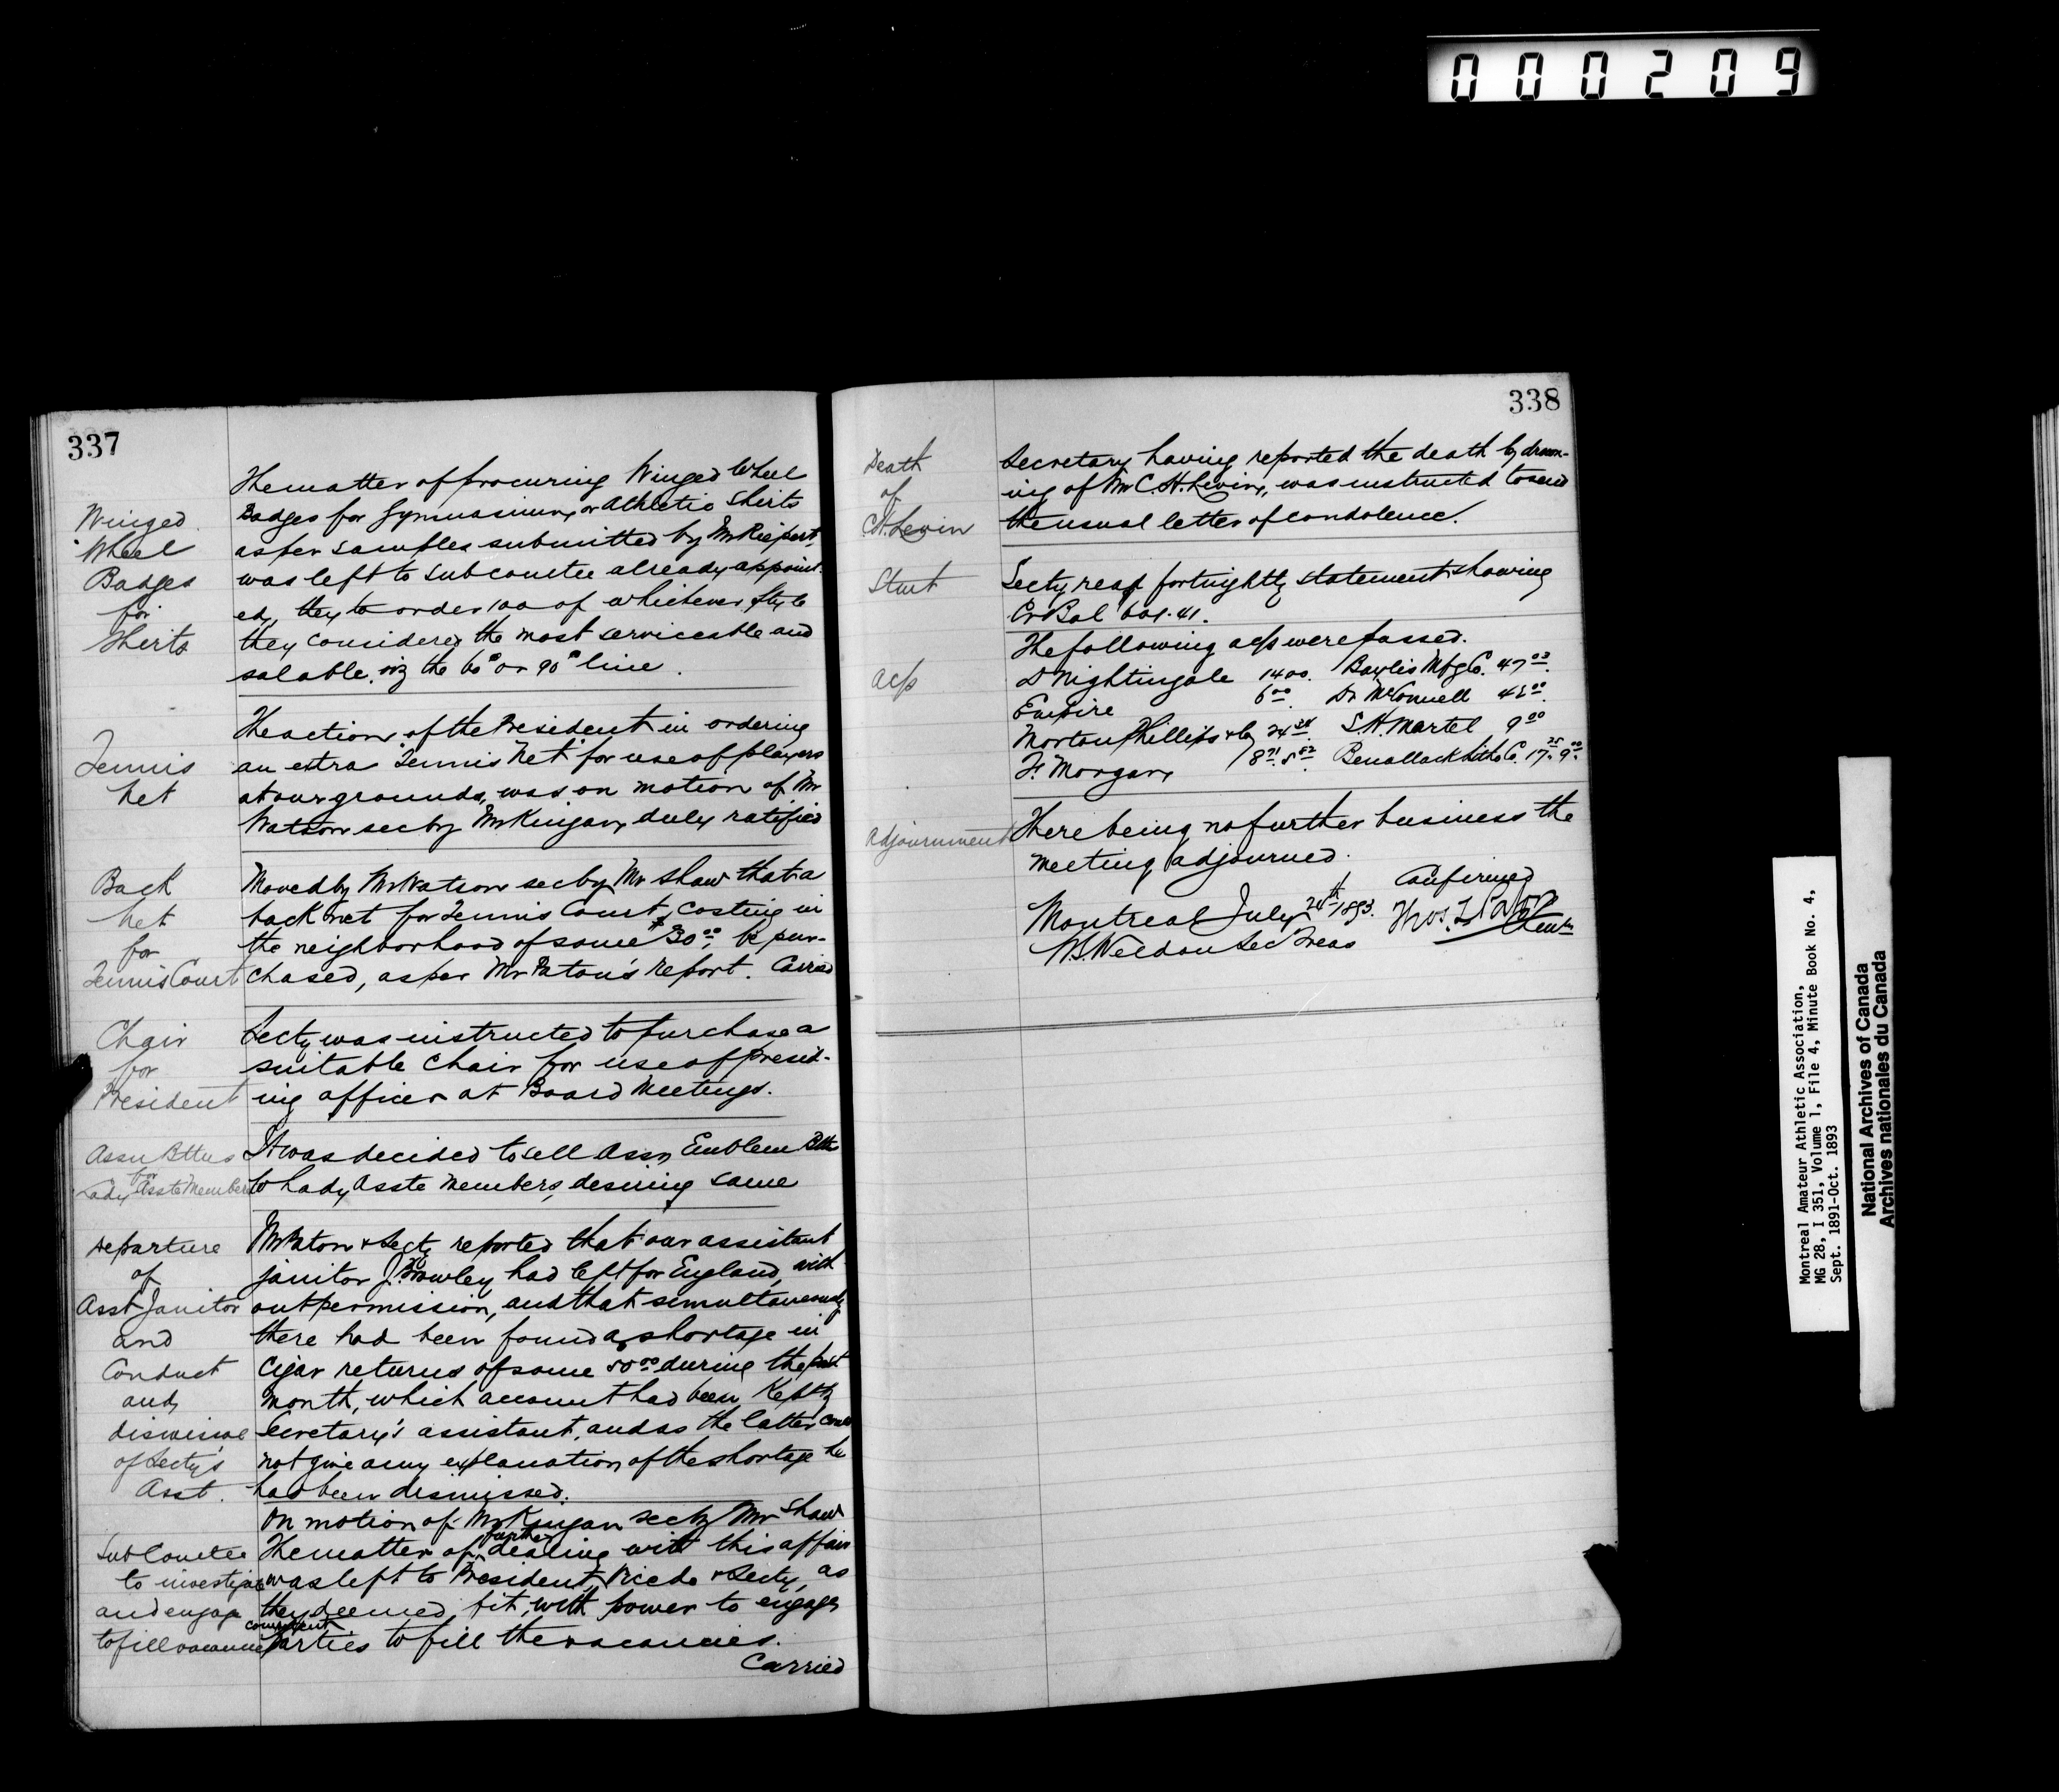 000209
337
The matter of procuring Winged Wheel
Winged
Badges for Gymnasium or Athletic Shirts
Wheel
as per samples submitted by Mr
Badges
was left to Sub comtee already appoint-
for
ed, they to order 100 of whichever style
Shirts
they considered the most serviceable and
salable, viz the 60º or 90º line.
The action of the President in ordering
Tennis
an extra "Tennis Net" for use of players
net
at our grounds, was on motion of Mr
Watson sec by Mr Kingan, duly ratified
Back
Moved by Mr Watson sec by Mr Shaw that a
net
back net for Tennis Court, costing in
for
the neighborhood of some $30.00, be pur-
Tennis Court
chased, as per Mr Paton's report. Carried
Chair
Secty was instructed to purchase a
for
suitable Chair for use of presid-
President
ing officer at Board Meetings.
Assn Bttns
It was decided to sell Assn Emblem Bttns
for
Lady Asste Members
to Lady Asste Members, desiring same
Departure
Mr Paton & Secty reported that our assistant
of
janitor J. had left for England, with-
Asst Janitor
out permission, and that simultaneously
and
there had been found a shortage in
Conduct
Cigar returns of some 50.00 during the past
and
month, which amount had been kept by
dismissal
Secretary's assistant, and as the latter could
of Secty's
not give any explanation of the shortage he
Asst.
had been dismissed.
On motion of Mr Kingan sec by Mr Shaw
Sub Comtee
The matter of further dealing with this affair
to investigate
was left to President, & Secty, as
and engage
they deemed fit, with power to engage
to fill vacancies
competent parties to fill the vacancies.
Carried
338
Death
Secretary having reported the death by drown-
of
ing of Mr C. H. Levin, was instructed to send
C.H. Levin
the usual letter of condolence.
Stmt
Secty read fortnightly statement showing
Cr Bal 601.41.
The following a/cs were passed.
a/cs
D Nightingale 14 00. Baylis Mfg Co. 47 03.
Empire 6 00. Dr McConnell 00.
Morton Phillips & Co 24 S.H. Martel 9 00
F. Morgan 8 71. 5 52 Benallack Litho Co. 17 25. 9 00.
Adjournment
There being no further business the
meeting adjourned.
Confirmed
Montreal July 24th 1893. Thos. L Paton
W.S. Weldon Sec Treas
Montreal Amateur Athletic Association,
MG 28, I 351, Volume 1, File 4, Minute Book No. 4,
Sept. 1891-Oct. 1893
National Archives of Canada
Archives nationales du Canada